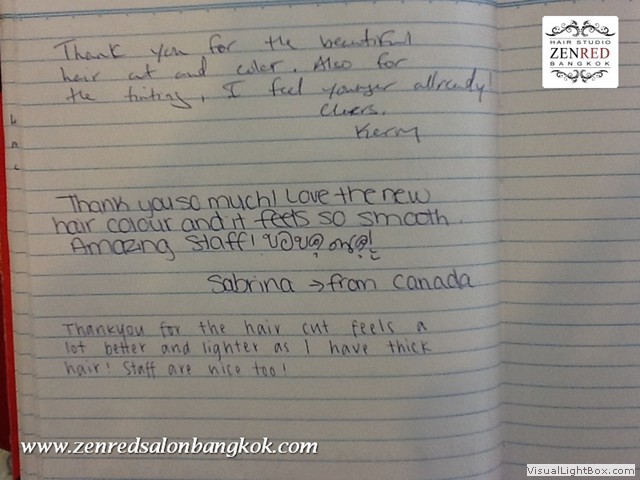 HAIR STUDIO
ZENRED
BANGKOK
Thank you for the beautiful
hair cut and color. Also for
the tinting, I feel younger allready!
Cheers.
Kerry
Thank you so much! Love the new
hair colour and it feels so smooth.
Amazing staff!
Sabrina → from Canada
Thankyou for the hair cut feels a
lot better and lighter as I have thick
hair! Staff are nice too!
www.zenredsalonbangkok.com
VisualLightBox.com